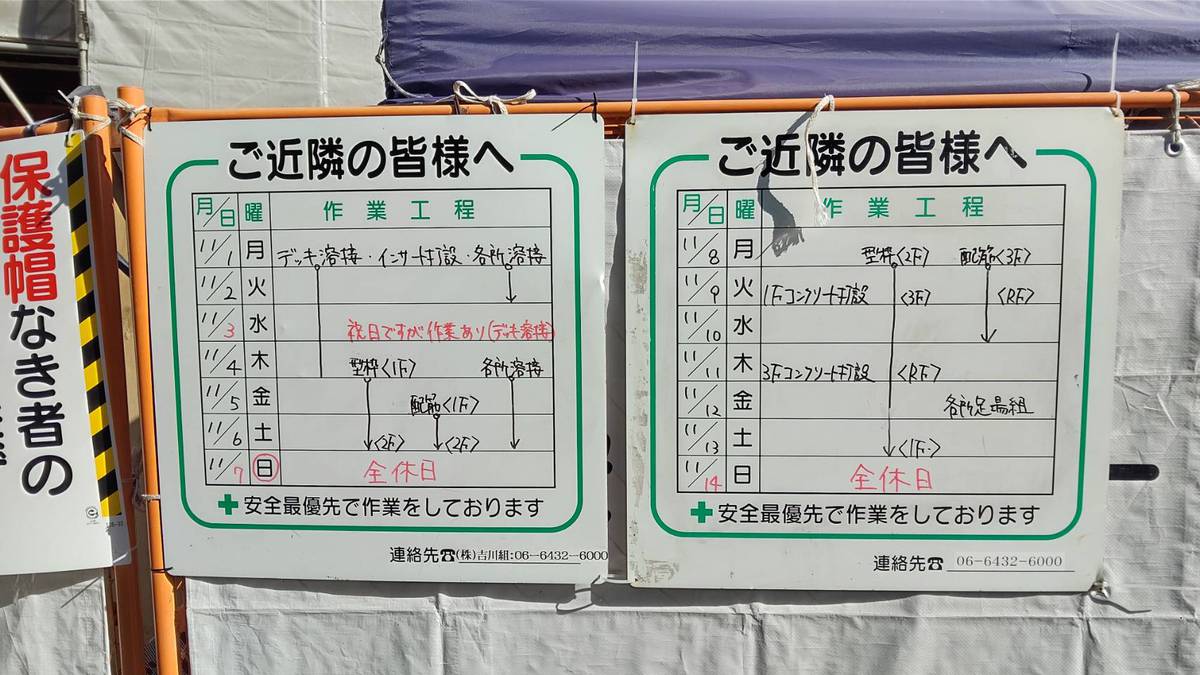 保護帽なき者の
ご近隣の皆様へ
月/日 曜 作業工程
11/1 月 デッキ溶接・インサート打設・各所溶接
11/2 火
11/3 水 祝日ですが作業あり(デッキ溶接)
11/4 木 型枠〈1F〉 各所溶接
11/5 金 配筋〈1F〉
11/6 土 〈2F〉 〈2F〉
11/7 日 全休日
安全最優先で作業をしております
連絡先☎(株)吉川組:06-6432-6000
ご近隣の皆様へ
月/日 曜 作業工程
11/8 月 型枠〈2F〉 配筋〈3F〉
11/9 火 1Fコンクリート打設 〈3F〉 〈RF〉
11/10 水
11/11 木 3Fコンクリート打設 〈RF〉
11/12 金 各所足場組
11/13 土 〈1F〉
11/14 日 全休日
安全最優先で作業をしております
連絡先☎ 06-6432-6000